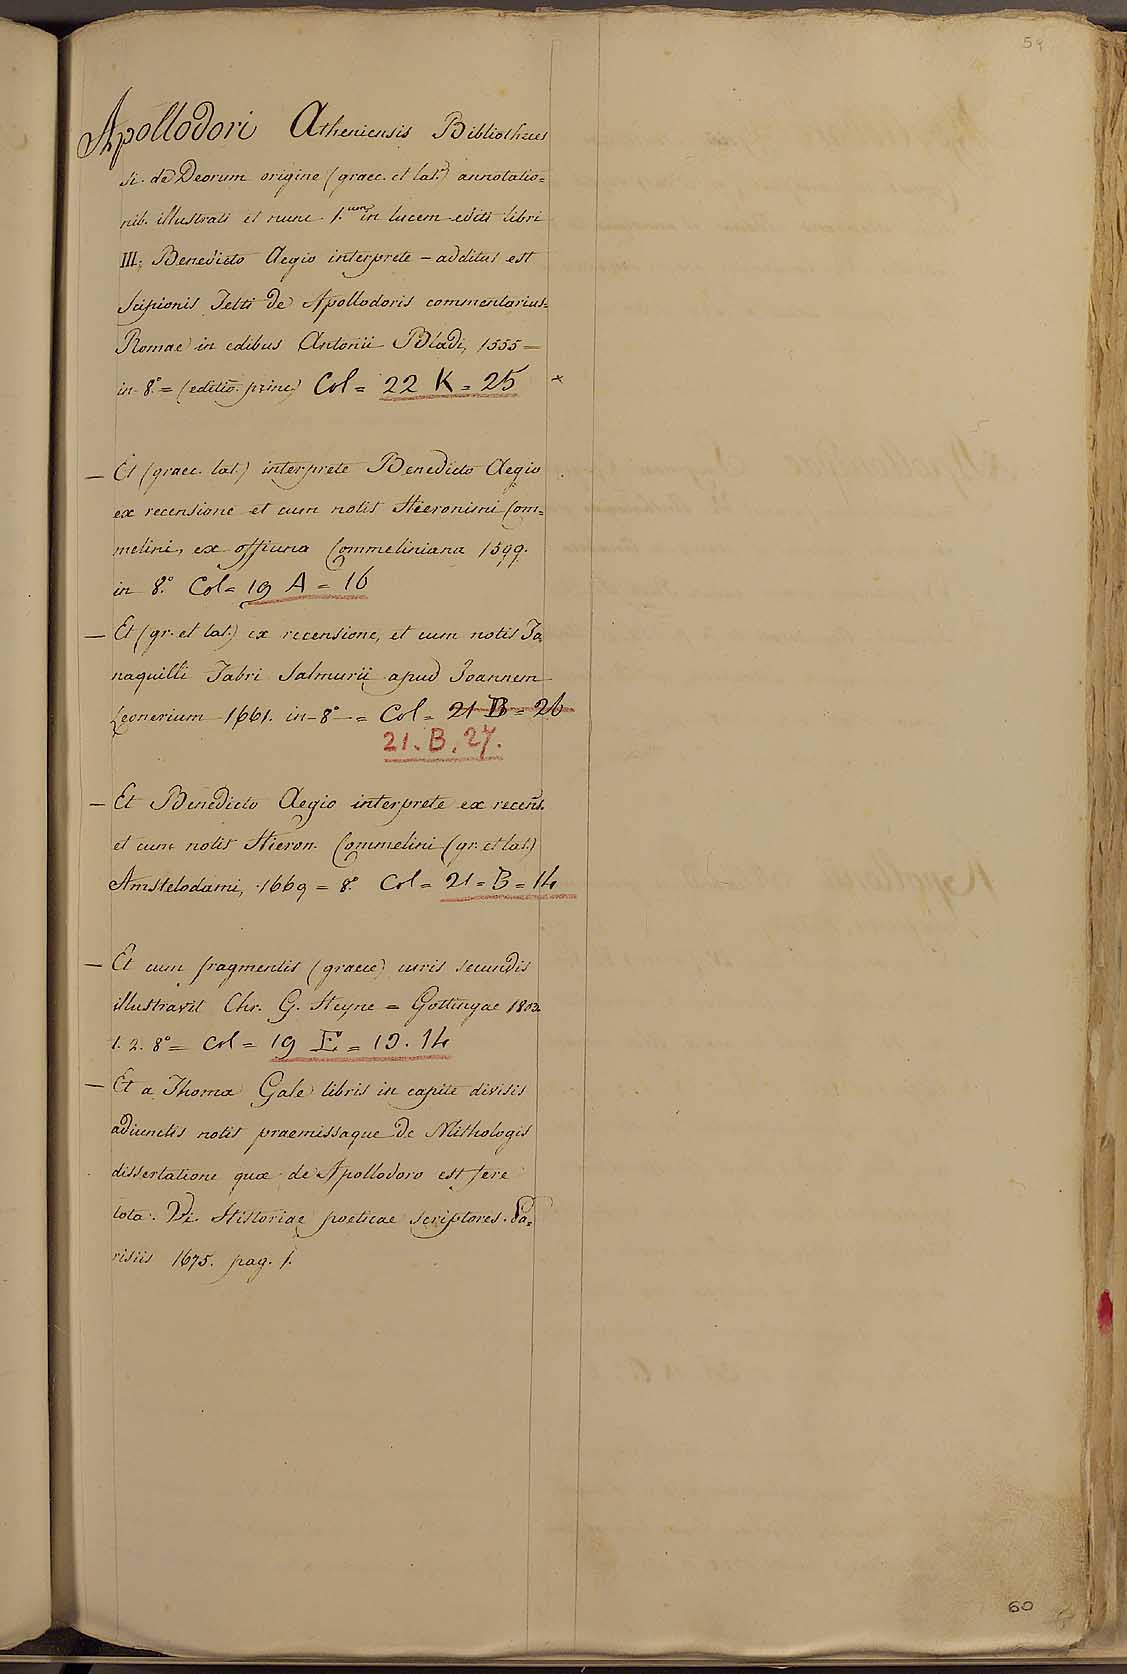 59
Apollodori Atheniensis Bibliotheces
si. de Deorum origine (graec. et lat.) annotatio=
nib. illustrati et nunc 1.um in lucem editi libri
III; Benedicto Aegio interprete – additus est
Scipionis Tetti de Apollodoris commentarius=
Romae in edibus Antonii Bladi, 1555 –
in 8.° = (editio princ) Col = 22 K = 25 ×
– Et (graec. lat.) interprete Benedicto Aegio
ex recensione et cum notis Hieronimi Com=
melini, ex officina Commeliniana 1599.
in 8.° Col = 19 A = 16
– Et (gr. et lat.) ex recensione, et cum notis Ta
naquilli Fabri Salmurii apud Joannem
Lesnerium 1661. in 8° – = Col = 21 B = 26
21. B. 27.
– Et Benedicto Aegio interprete ex recens.
et cum notis Hieron. Commelini (gr. et lat.)
Amstelodami, 1669 = 8.° Col = 21 = B = 14
– Et cum fragmentis (graece) curis secundis
illustravit Chr. G. Heyne = Gottingae 1803.
1. 2. 8° = Col = 19 E = 13. 14
– Et a Thoma Gale libris in capite divisis
adiunctis notis praemissaque de Mithologis
dissertatione quae de Apollodoro est fere
tota. Vi. Historiae poeticae scriptores. Pa=
risiis 1675. pag. 1.
60